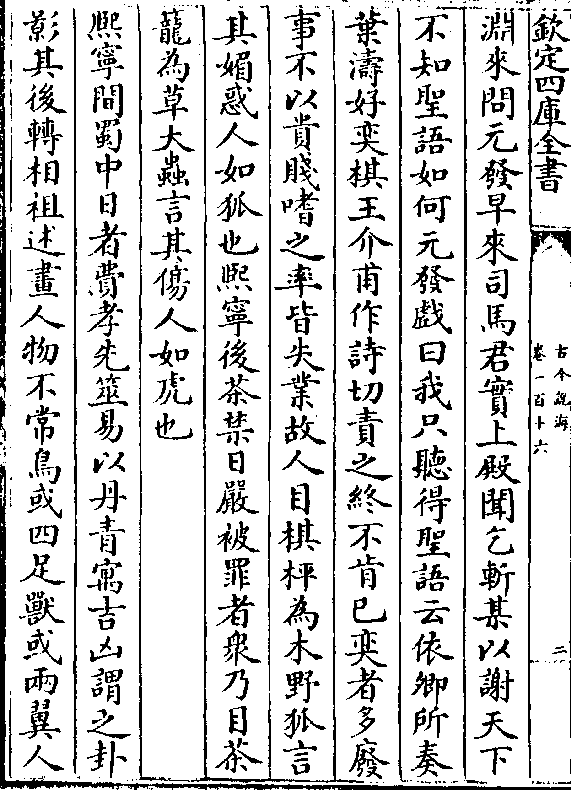 欽定四庫全書
古今說海
卷一百十六
二
淵來問元發早來司馬君實上殿聞乞斬某以謝天下
不知聖語如何元發戲曰我只聽得聖語云依卿所奏
葉濤好奕棋王介甫作詩切責之終不肯已奕者多廢
事不以貴賤嗜之率皆失業故人目棋枰為木野狐言
其媚惑人如狐也熙寧後茶禁日嚴被罪者衆乃目茶
籠為草大蟲言其傷人如虎也
熙寧間蜀中日者費孝先筮易以丹青寓吉凶謂之卦
影其後轉相祖述畫人物不常鳥或四足獸或兩翼人